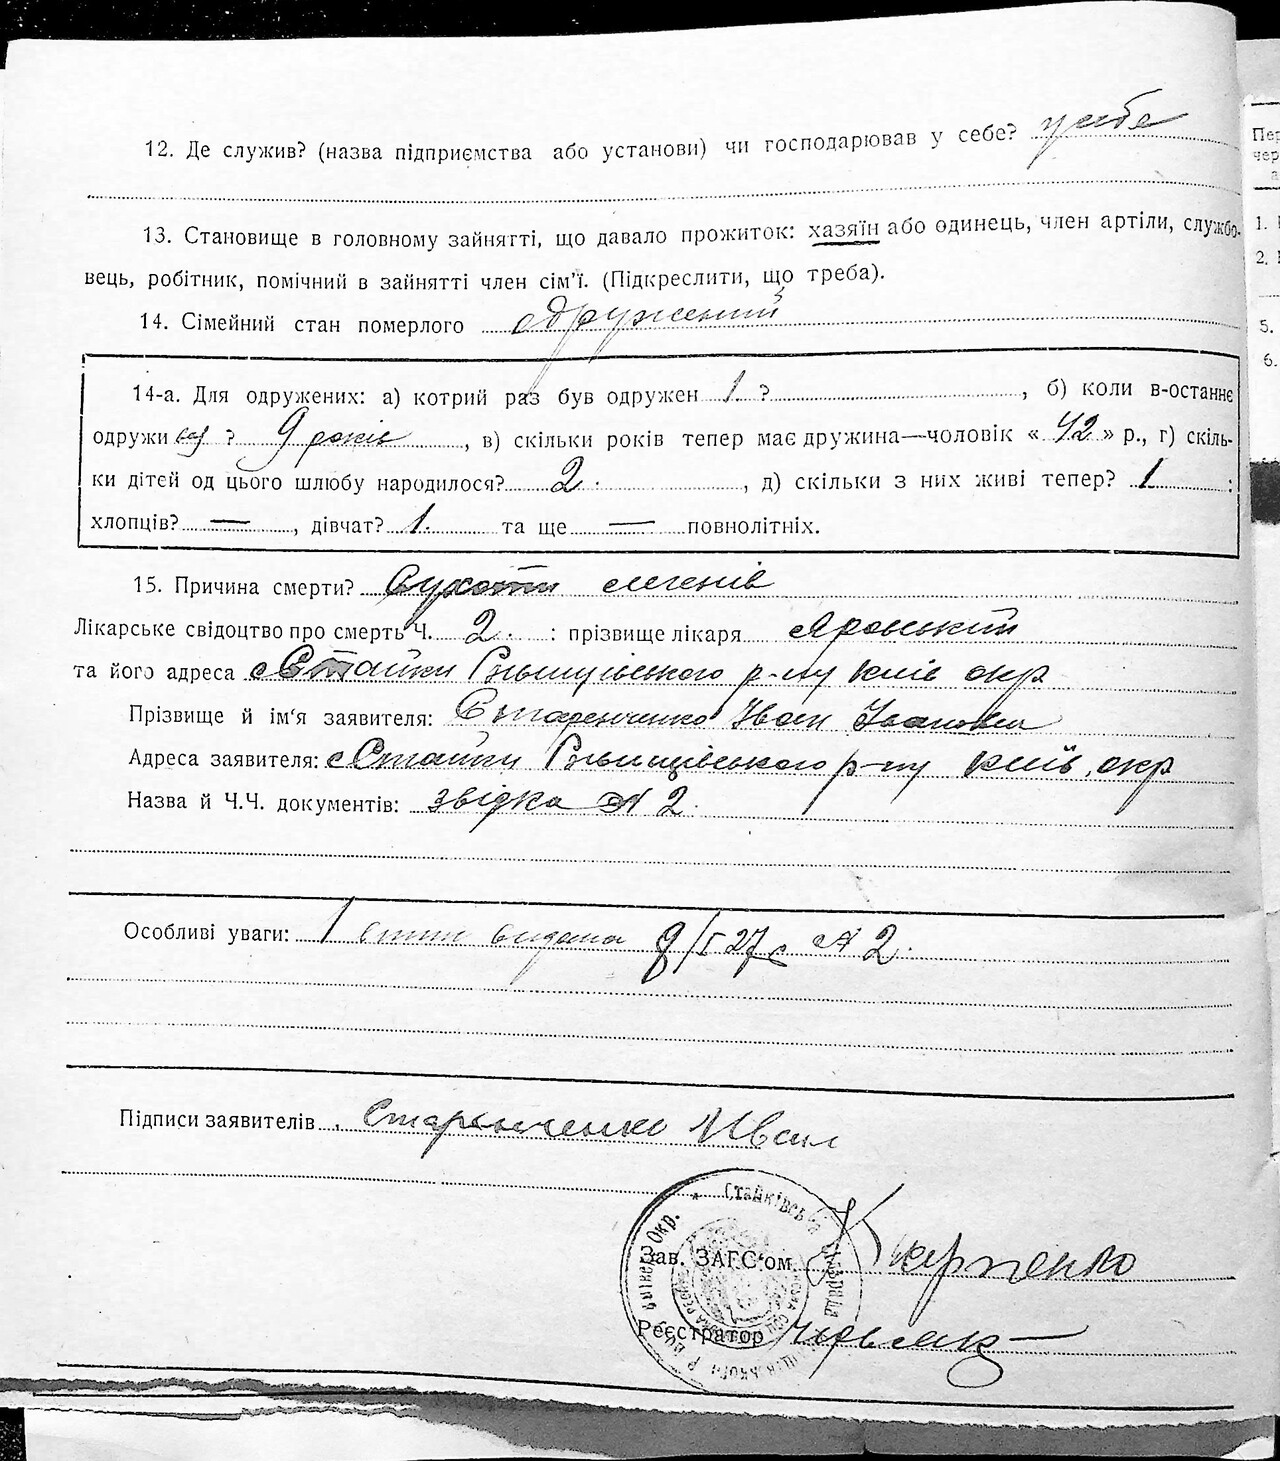 12. Де служив? (назва підприємства або установи) чи господарював у себе? у себе
13. Становище в головному зайнятті, що давало прожиток: хазяїн або одинець, член артілі, службо-
вець, робітник, помічний в зайнятті член сім’ї. (Підкреслити, що треба).
14. Сімейний стан померлого одружений
14-а. Для одружених: а) котрий раз був одружен 1 ? , б) коли в-останнє
одружи вся ? 9 років , в) скільки років тепер має дружина—чоловік « 42 » р., г) скіль-
ки дітей од цього шлюбу народилося? 2. , д) скільки з них живі тепер? 1 :
хлопців? — , дівчат? 1. та ще — повнолітніх.
15. Причина смерти? Сухоти легенів
Лікарське свідоцтво про смерть Ч. 2. : прізвище лікаря Яровський
та його адреса с Стайки Ржищівського р-ну Київ окр
Прізвище й ім‘я заявителя: Старенченко Іван Іванович
Адреса заявителя: с Стайки Ржищівського р-ну Київ. окр
Назва й Ч.Ч. документів: звідка № 2.
Особливі уваги: 1 видана 8/I 27 № 2.
Підписи заявителів Старенченко Иван
Стайківська сільрада
Окр.
Зав. ЗАГС‘ом Карпенко
Реєстратор